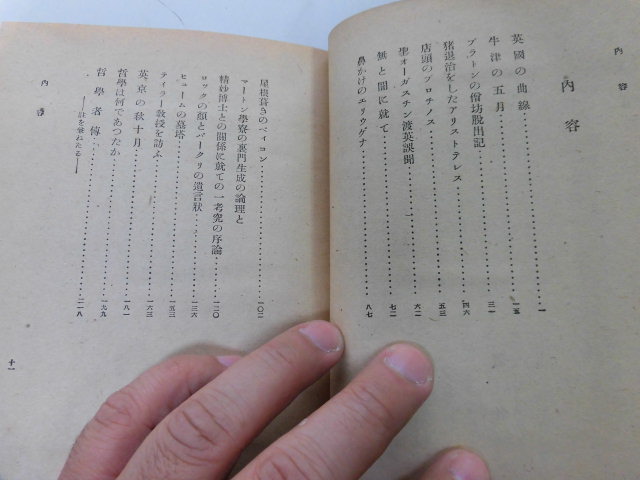 内容
内容
英國の曲線 一
牛津の五月 一五
プラトンの僧坊脱出記 三一
猪退治をしたアリストテレス 四六
店頭のプロチノス 五三
聖オーガスチン渡英誤聞 六二
無と闇に就て 七二
鼻かけのエリウゲナ 八七
屋根葺きのベイコン 一〇二
マートン學寮の裏門生成の論理と
精妙博士との關係に就ての一考究の序論 一二〇
ロックの顏とバークリの遺言狀 一三六
ヒュームの墓塔 一五三
テイラー教授を訪ふ 一六三
英京の秋十月 一八一
哲學は何であつたか 一九九
哲學者傳
――計を兼ねたる―― 二一八
内容